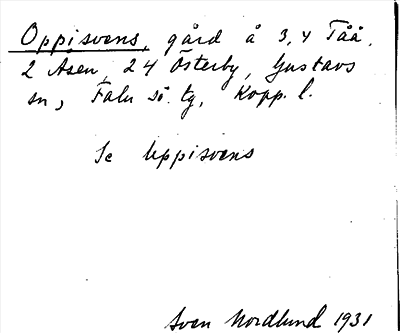 Oppisvens, gård å 3,4 Tåå,
2 Åsen, 24 Österby, Gustavs
sn, Falu sö. tg, Kopp. l.
Se Uppisvens
Sven Nordlund 1931